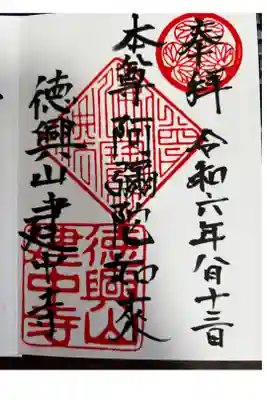 奉拝 令和六年八月十三日
本尊 阿彌陀如来
徳興山 建中寺
徳興山
建中寺